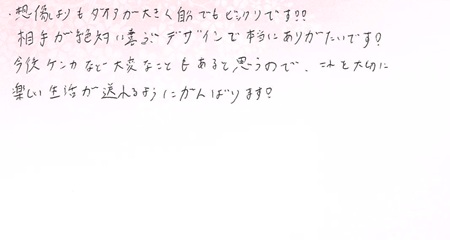 ・想像よりもダイアが大きく自分でもビックリです??
相手が絶対に喜ぶデザインで本当にありがたいです?
今後ケンカなど大変なこともあると思うので、これを大切に
楽しい生活が送れるようにがんばります?